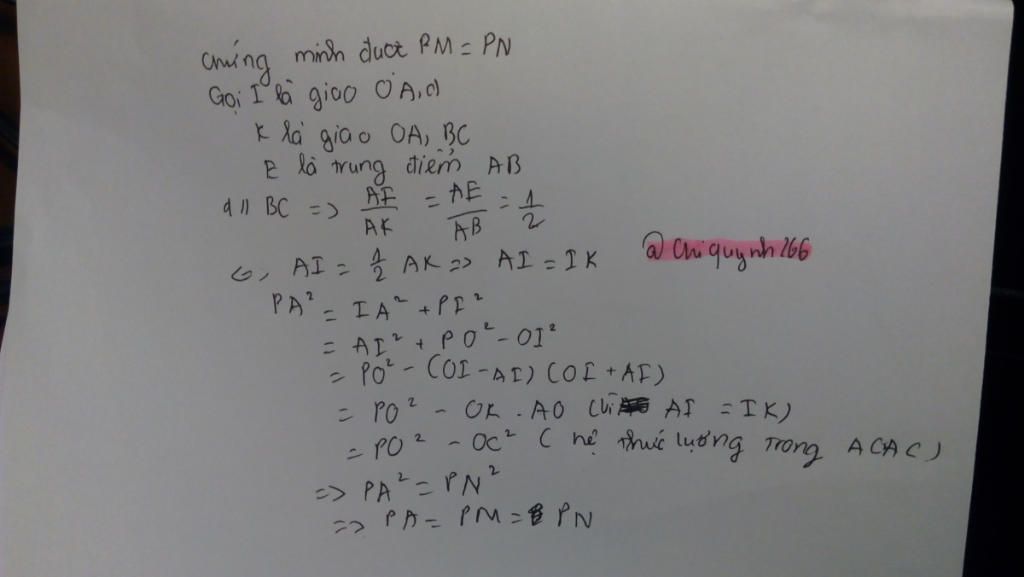 chứng minh được PM = PN
Gọi I là giao OA, d
K là giao OA, BC
E là trung điểm AB
d // BC => AI/AK = AE/AB = 1/2
AI = 1/2 AK => AI = IK
@chiquynh266
PA² = IA² + PI²
= AI² + PO² - OI²
= PO² - (OI - AI) (OI + AI)
= PO² - OK . AO (Vì AI = IK)
= PO² - OC² ( hệ thức lượng trong ACAC)
=> PA² = PN²
=> PA = PM = PN